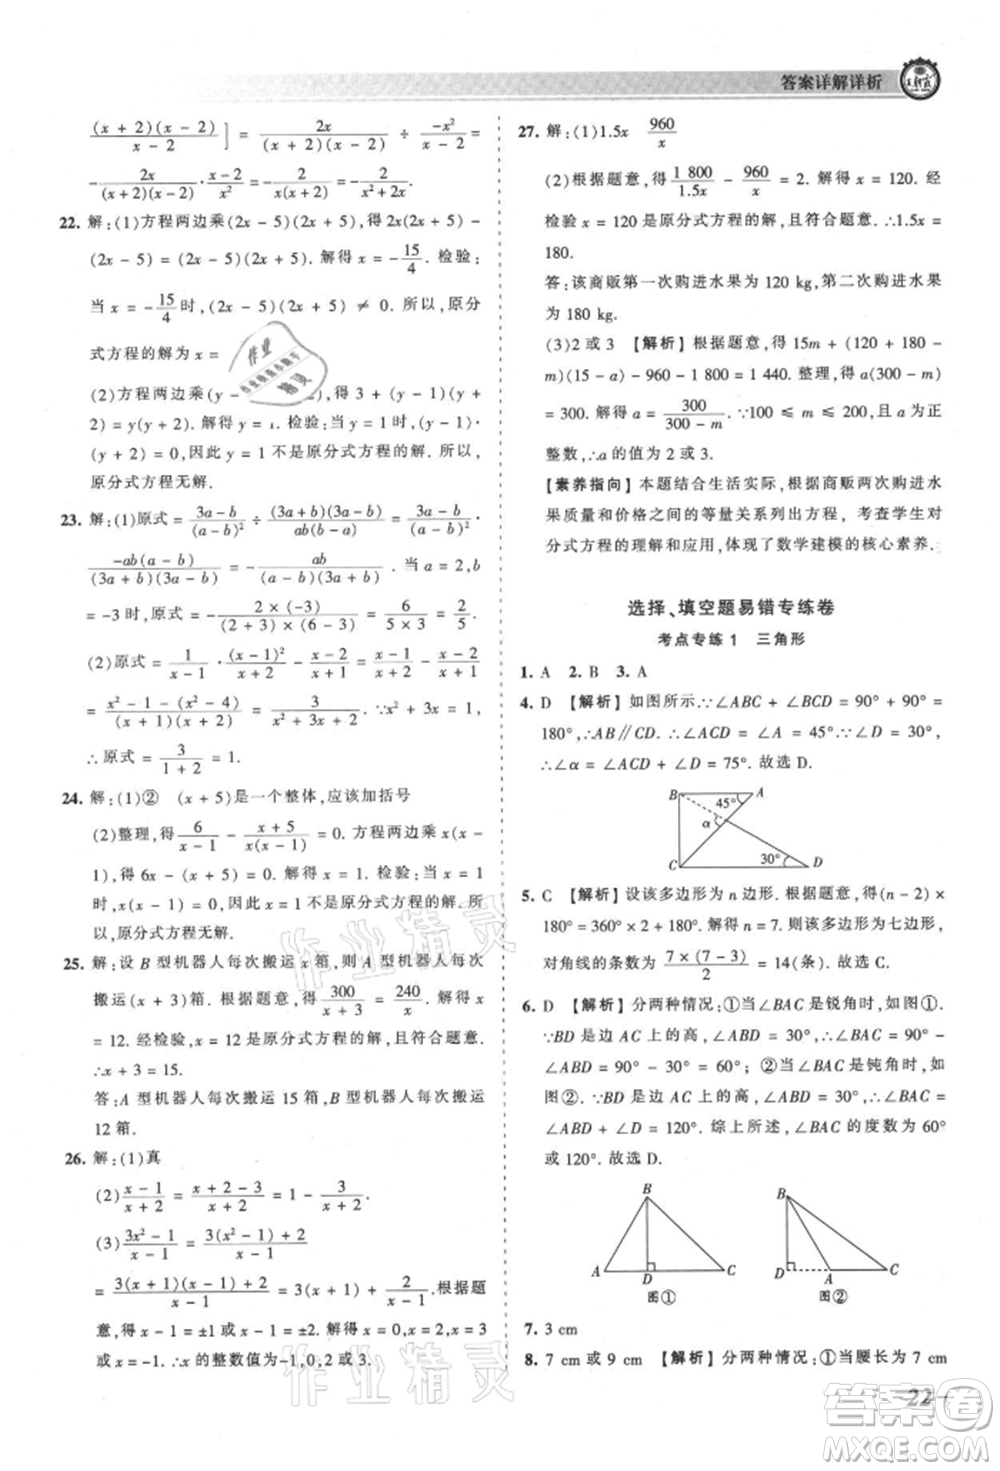 答案详解详析
王朝霞
(x + 2)(x - 2)/(x - 2)] = 2x/((x + 2)(x - 2)) ÷ (-x²)/(x - 2) =
- 2x/((x + 2)(x - 2)) · (x - 2)/x² = - 2/(x(x + 2)) = - 2/(x² + 2x).
22. 解:(1)方程两边乘(2x - 5)(2x + 5),得 2x(2x + 5) -
2(2x - 5) = (2x - 5)(2x + 5). 解得 x = - 15/4. 检验:
当 x = - 15/4 时,(2x - 5)(2x + 5) ≠ 0. 所以,原分
式方程的解为 x =
(2)方程两边乘(y - 2),得 3 + (y - 1)(y + 2)
= y(y + 2). 解得 y = 1. 检验:当 y = 1 时,(y - 1)·
(y + 2) = 0,因此 y = 1 不是原分式方程的解. 所以,
原分式方程无解.
23. 解:(1)原式 = (3a - b)/(a - b)² ÷ (3a + b)(3a - b)/(ab(b - a)) = (3a - b)/(a - b)² ·
-ab(a - b)/((3a + b)(3a - b)) = - ab/((3a + b)(a - b)). 当 a = 2,b
= -3 时,原式 = - 2 × (-3)/((2 + 3)(6 - 3)) = 6/(5 × 3) = 2/5.
(2)原式 = 1/(x - 1) · (x - 1)²/(x + 2) - (x - 2)/(x + 1) = (x - 1)/(x + 2) - (x - 2)/(x + 1)
= (x² - 1 - (x² - 4))/((x + 1)(x + 2)) = 3/(x² + 3x + 2). ∵x² + 3x - 1 = 0,
∴原式 = 3/(1 + 2) = 1.
24. 解:(1)② (x + 5)是一个整体,应该加括号
(2)整理,得 6/(x - 1) - (x + 5)/(x(x - 1)) = 0. 方程两边乘 x(x -
1),得 6x - (x + 5) = 0. 解得 x = 1. 检验:当 x = 1
时,x(x - 1) = 0,因此 x = 1 不是原分式方程的解. 所
以,原分式方程无解.
25. 解:设 B 型机器人每次搬运 x 箱,则 A 型机器人每次
搬运(x + 3)箱. 根据题意,得 300/(x + 3) = 240/x. 解得 x
= 12. 经检验,x = 12 是原分式方程的解,且符合题意.
∴x + 3 = 15.
答:A 型机器人每次搬运 15 箱,B 型机器人每次搬运
12 箱.
26. 解:(1)真
(2) (x - 1)/(x + 2) = (x + 2 - 3)/(x + 2) = 1 - 3/(x + 2).
(3) (3x² - 1)/(x - 1) = (3(x² - 1) + 2)/(x - 1)
= (3(x + 1)(x - 1) + 2)/(x - 1) = 3(x + 1) + 2/(x - 1). 根据题
意,得 x - 1 = ±1 或 x - 1 = ±2. 解得 x = 0 或 2 或 3
或 -1. ∴x 的整数值为 -1,0,2 或 3.
27. 解:(1)1.5x 960/x
(2)根据题意,得 1 800/1.5x - 960/x = 2. 解得 x = 120. 经
检验 x = 120 是原分式方程的解,且符合题意. ∴1.5x =
180.
答:该商贩第一次购进水果为 120 kg,第二次购进水果
为 180 kg.
(3)2 或 3 【解析】根据题意,得 15m + (120 + 180 -
m)(15 - a) - 960 - 1 800 = 1 440. 整理,得(300 - m)a
= 300. 解得 a = 300/(300 - m). ∵100 ≤ m ≤ 200,且 a 为正
整数,∴a 的值为 2 或 3.
【素养指向】本题结合生活实际,根据商贩两次购进水
果质量和价格之间的等量关系列出方程,考查学生对
分式方程的理解和应用,体现了数学建模的核心素养.
选择、填空题易错专练卷
考点专练 1 三角形
1. A 2. B 3. A
4. D 【解析】如图所示.∵∠ABC + ∠BCD = 90° + 90° =
180°,∴AB∥CD. ∴∠ACD = ∠A = 45°.∵∠D = 30°,
∴∠α = ∠ACD + ∠D = 75°. 故选 D.
B A 45° α C 30° D
5. C 【解析】设该多边形为 n 边形. 根据题意,得(n - 2) ×
180° = 360° × 2 + 180°. 解得 n = 7. 则该多边形为七边形,
对角线的条数为 7 × (7 - 3)/2 = 14(条). 故选 C.
6. D 【解析】分两种情况:①当∠BAC 是锐角时,如图①.
∵BD 是边 AC 上的高,∠ABD = 30°,∴∠BAC = 90° -
∠ABD = 90° - 30° = 60°;②当∠BAC 是钝角时,如
图②. ∵BD 是边 AC 上的高,∠ABD = 30°,∴∠BAC =
90° + 30° = 120°. 综上所述,∠BAC 的度数为 60°
或 120°. 故选 D.
B A D C 图①
B D A C 图②
7. 3 cm
8. 7 cm 或 9 cm 【解析】分两种情况:①当腰长为 7 cm
22
作业精灵
作业精灵
答案卷
MXQE.COM